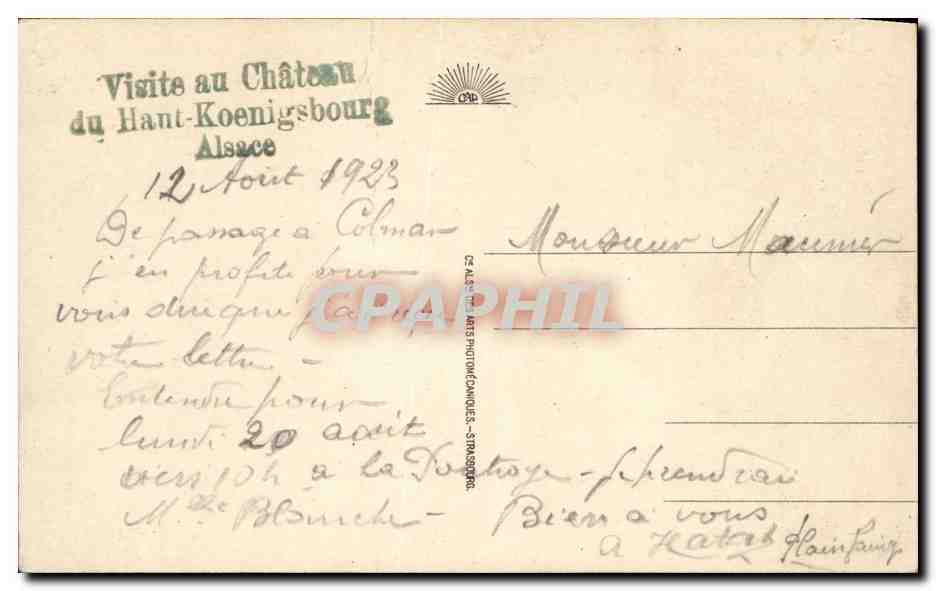 Visite au Château
du Haut-Koenigsbourg
Alsace
CAP
12 Août 1923
De passage a Colmar
j'en profite pour
vous dire que j'ai
votre lettre -
Entendu pour
lundi 20 août
vers 10h a la Poutroye - je prendrai
Mlle Blanche -
Bien à vous
a
Plainfaing
Monsieur Maunier
CIE ALSNE DES ARTS PHOTOMÉCANIQUES.-STRASBOURG.
CPAPHIL